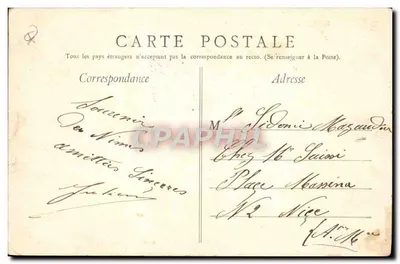 CARTE POSTALE
Tous les pays étrangers n'acceptent pas la correspondance au recto. (Se renseigner à la Poste).
Correspondance
Adresse
Souvenir
De Nîmes
amitiés Sincères
Julien
M
Chez Mr
Place Massena
N2 Nice
(Ales Mes
CPAPHIL.COM